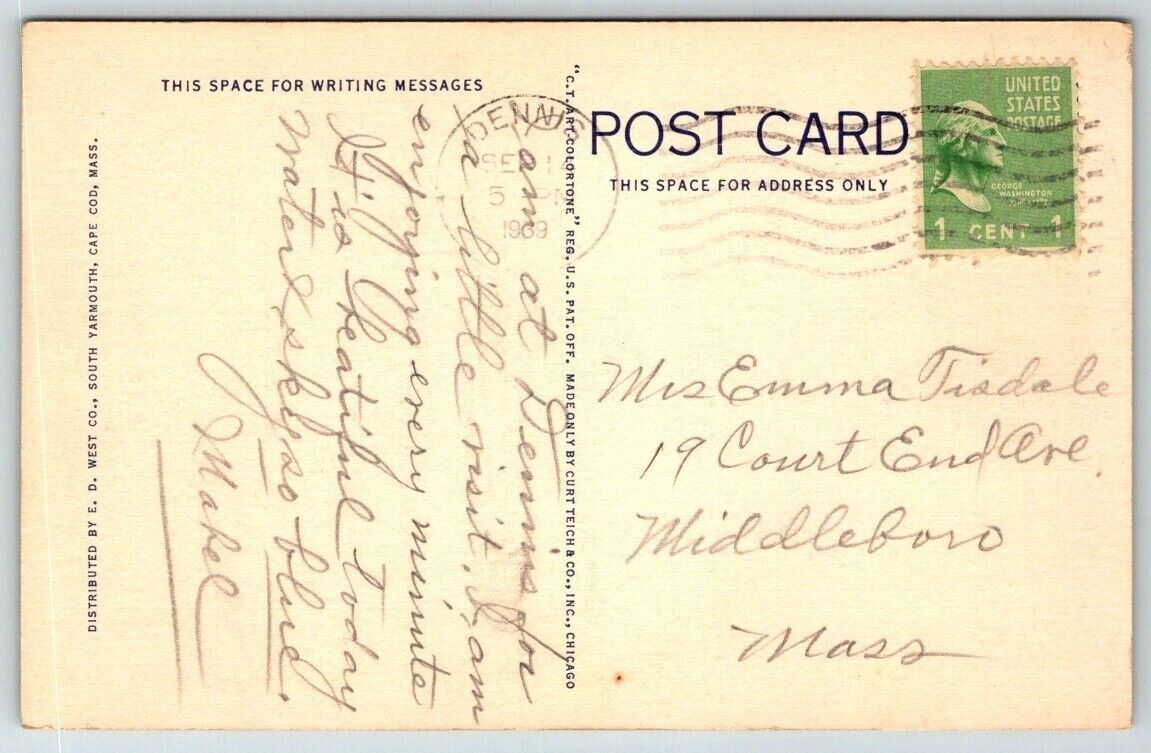 THIS SPACE FOR WRITING MESSAGES
Am at Dennis for
a little visit. I am
enjoying every minute
of it. It
is beatiful today
water & sky so blue.
Mabel
DISTRIBUTED BY E. D. WEST CO., SOUTH YARMOUTH, CAPE COD, MASS.
"C.T. ART-COLORTONE" REG. U.S. PAT. OFF. MADE ONLY BY CURT TEICH & CO., INC., CHICAGO
DENNIS
SEP 1
5 PM
1939
POST CARD
THIS SPACE FOR ADDRESS ONLY
UNITED
STATES
POSTAGE
GEORGE
WASHINGTON
1 CENT 1
Mrs Emma Tisdale
19 Court End Ave.
Middleboro
Mass